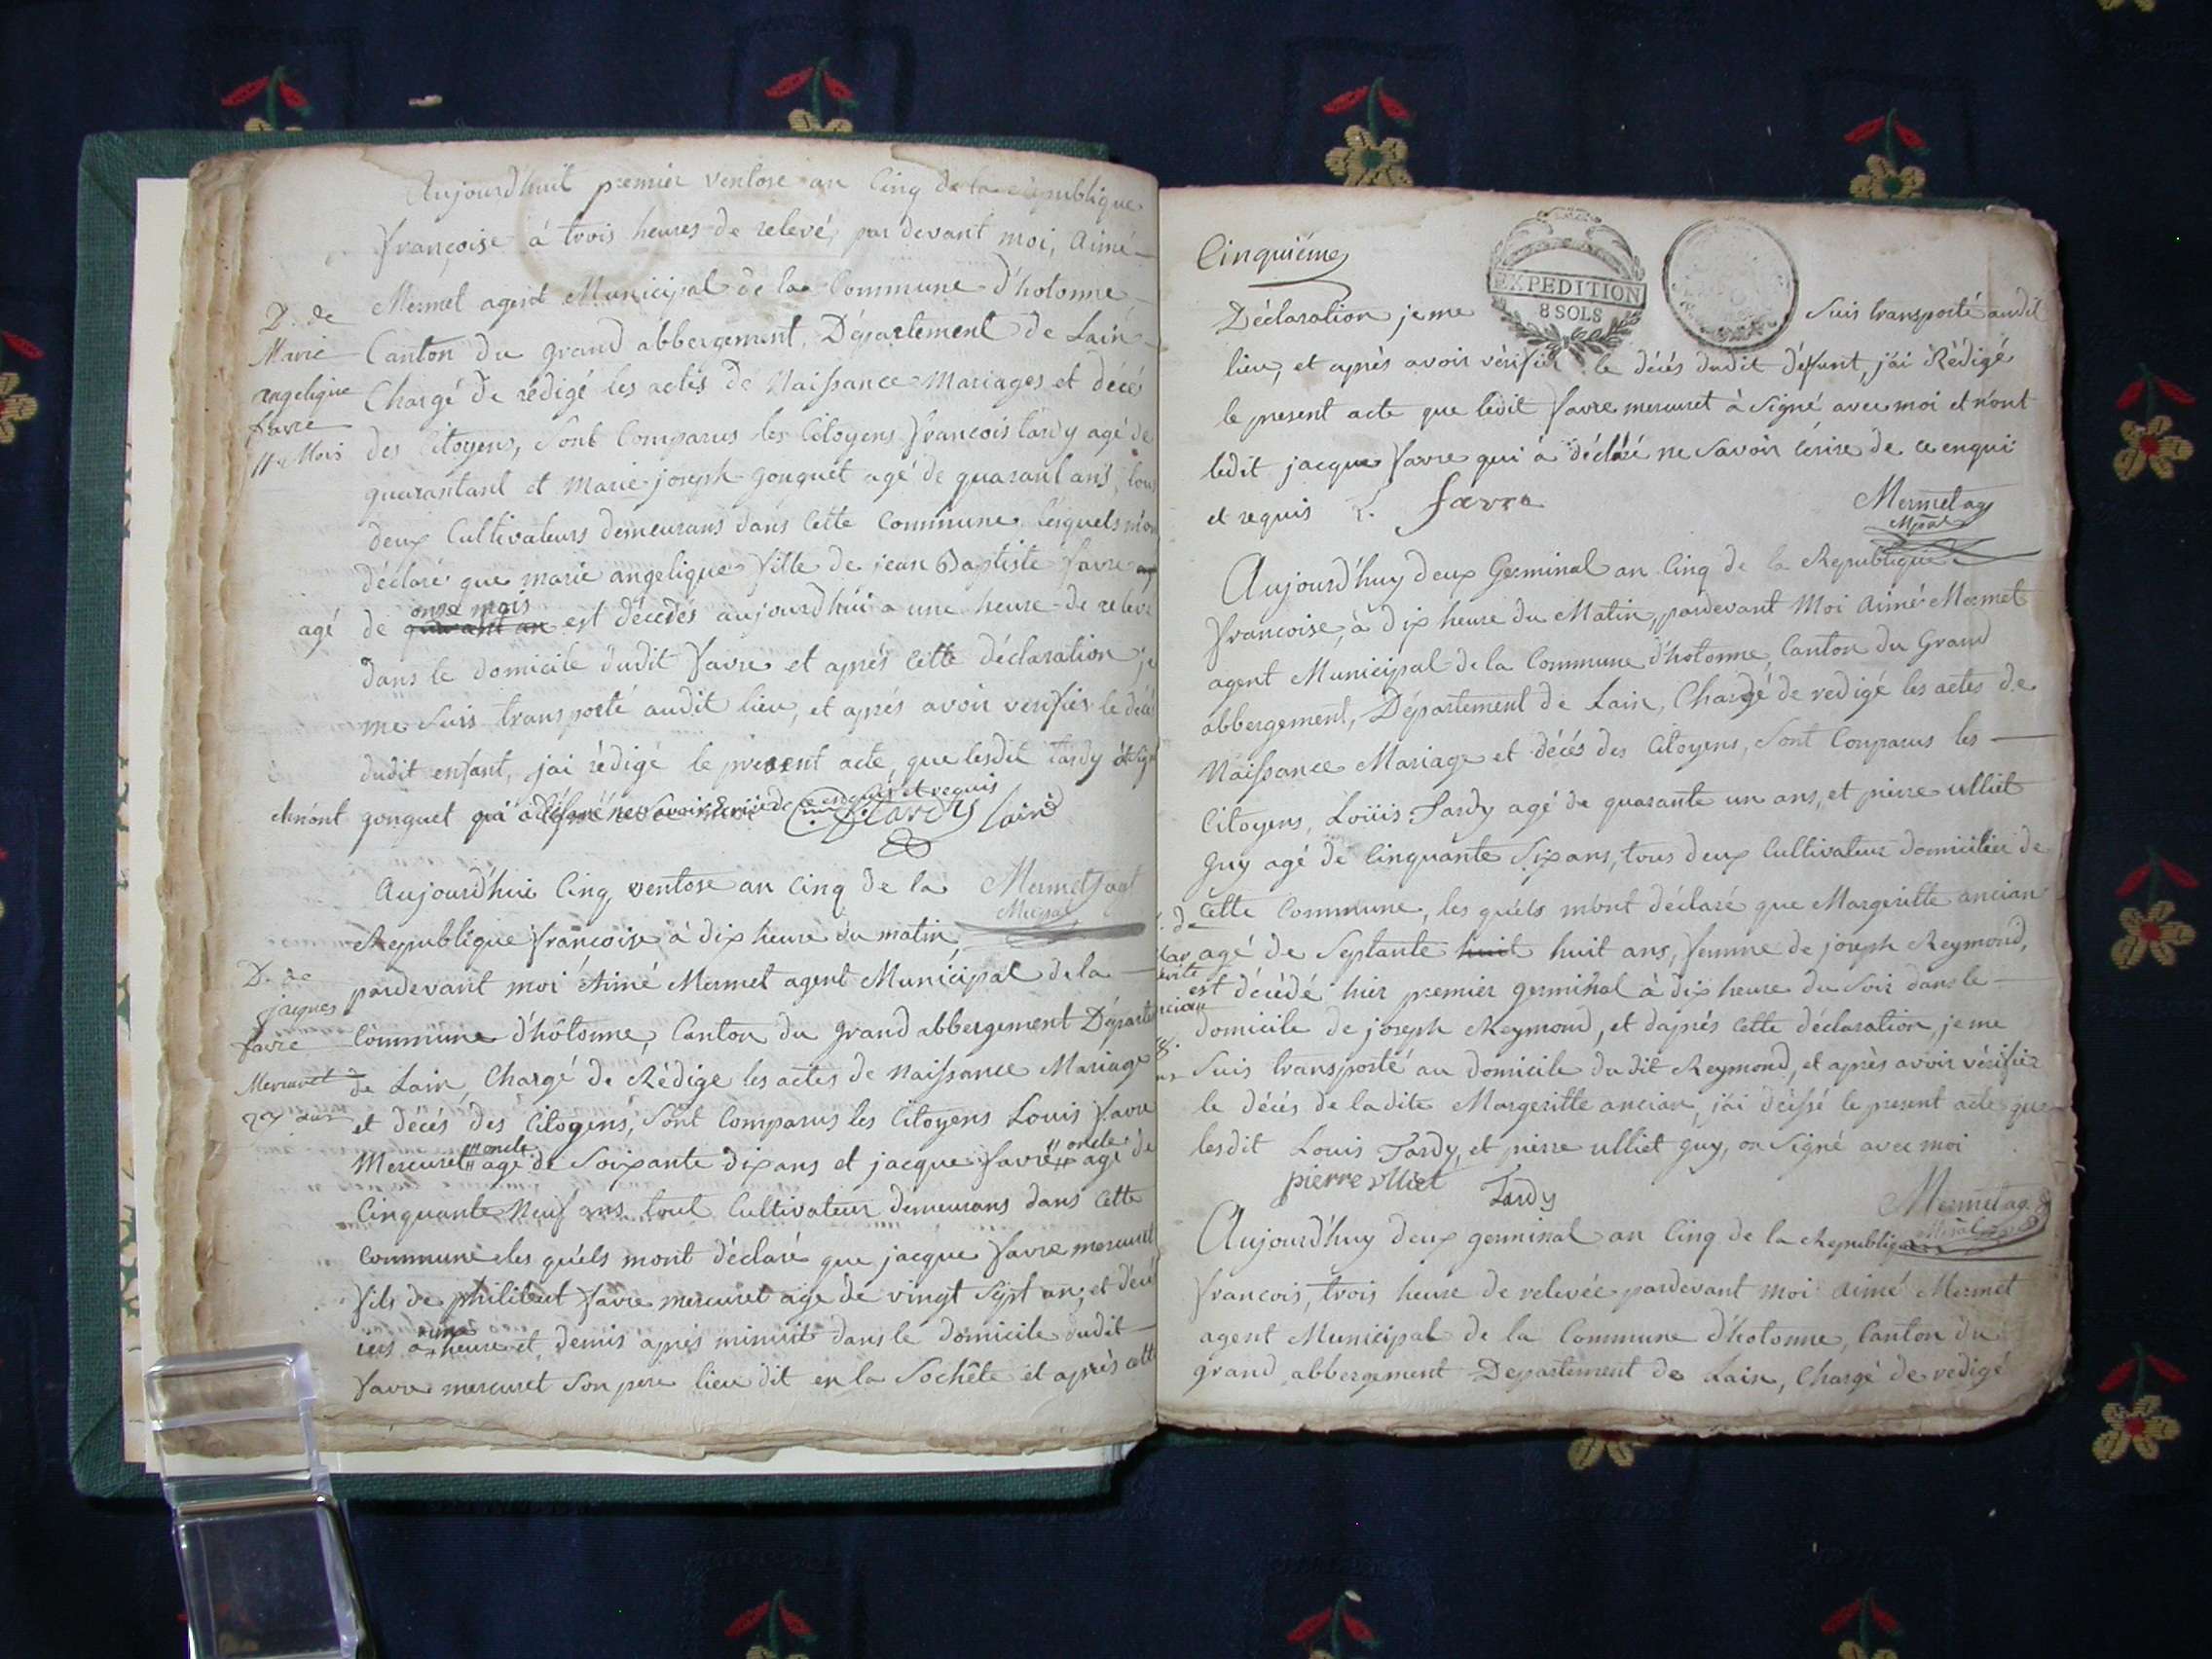 Aujourd'huit premier ventose an Cinq de la republique
françoise à trois heures de relevé, par devant moi, Aimé
Mermet agent Municipal de la Commune d'hotonne
D. de
Marie
angelique
favre
11 Mois
Canton du grand abbergement, Département de Lain
Chargé de rédigé les actes de Naissance Mariages et décés
des Citoyens, Sont Comparus les Citoyens francois tardy agé de
quarantant et marie joseph gouquet agé de quarant ans, tous
deux Cultivateurs demeurans dans Cette Commune lesquels mon
déclaré que marie angelique fille de jean Baptiste favre
agé de onze mois est décedés aujourdhui a une heure de relevé
dans le domicile dudit favre et aprés Cette déclaration je
me Suis transporté audit lieu, et aprés avoir verifiés le décé
dudit enfant, jai rédigé le present acte, que lesdit tardy
et n'ont gouquet qui a déclaré ne Savoir Ecrire de ce enquis et requis
Tardy
Aujourd'hui Cinq ventose an Cinq de la Mermet agt
Mupal
Republique francoise à dix heure du matin
D. de
jacques
favre
Mercuret
27 ans
pardevant moi Aimé Mermet agent Municipal de la
Commune d'hôtonne, Canton du grand abbergement Départe
de Lain, Chargé de Rédige les actes de Naissance Mariage
et décés des Citogens, Sont Comparus les Citoyens Louis favre
Mercuret oncle agé de Soixante dix ans et jacque favre oncle agé de
Cinquante Neuf ans tout Cultivateur demeurans dans Cette
Commune les quéls mont déclaré que jacque favre mercuret
fils de philibeut favre mercuret agé de vingt Sept an, et décé
iers à une heure et demis aprés minuit dans le domicile dudit
favre mercuret Son pere lieu dit en la Sochête et aprés cett
Cinquiéme
EXPEDITION
8 SOLS
Déclaration je me Suis transporté audit
lieu, et aprés avoir vérifier le décés dudit défunt, j'ai Rédigé
le present acte que ledit favre mercuret à Signé avec moi et n'ont
ledit jacque favre qui à déclaré ne Savoir écrire de ce enqui
et requis L. favre Mermet ag
Mpal
Aujourd'huy deux Germinal an Cinq de la Republique
francoise, à dix heure du Matin, pardevant Moi Aimé Mermet
agent Municipal de la Commune d'hotonne, Canton du Grand
abbergement, Département de Lain, Chargé de redigé les actes de
Naissance Mariage et décés des Citoyens, Sont Comparus les
Citoyens, Loüis Tardy agé de quarante un ans, et pierre ulliet
guy agé de Cinquante Six ans, tous deux Cultivateur domicilier de
Cette Commune, les quéls m'ont déclaré que Margeritte ancian
agé de Septante huit huit ans, femme de joseph Reymond,
est décédé hier premier germinal à dix heure du Soir dans le
domicile de joseph Reymond, et daprés Cette déclaration, je me
Suis transporté au domicile du dit Reymond, et aprés avoir vérifier
le décés de ladite Margeritte ancian, j'ai dréssé le present acte que
lesdit Louis Tardy, et pierre ulliet guy, on Signé avec moi
pierre ulliet Tardy
Mermet ag
Aujourd'huy deux germinal an Cinq de la Republique
francois, trois heure de relevée pardevant moi Aimé Mermet
agent Municipal de la Commune d'hotonne, Canton du
grand abbergement Departement de Lain, Chargé de redigé